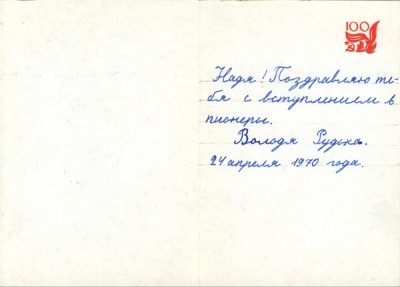 100
Надя! Поздравляю те-
бя с вступлением в
пионеры.
Володя Рудька.
24 апреля 1970 года.